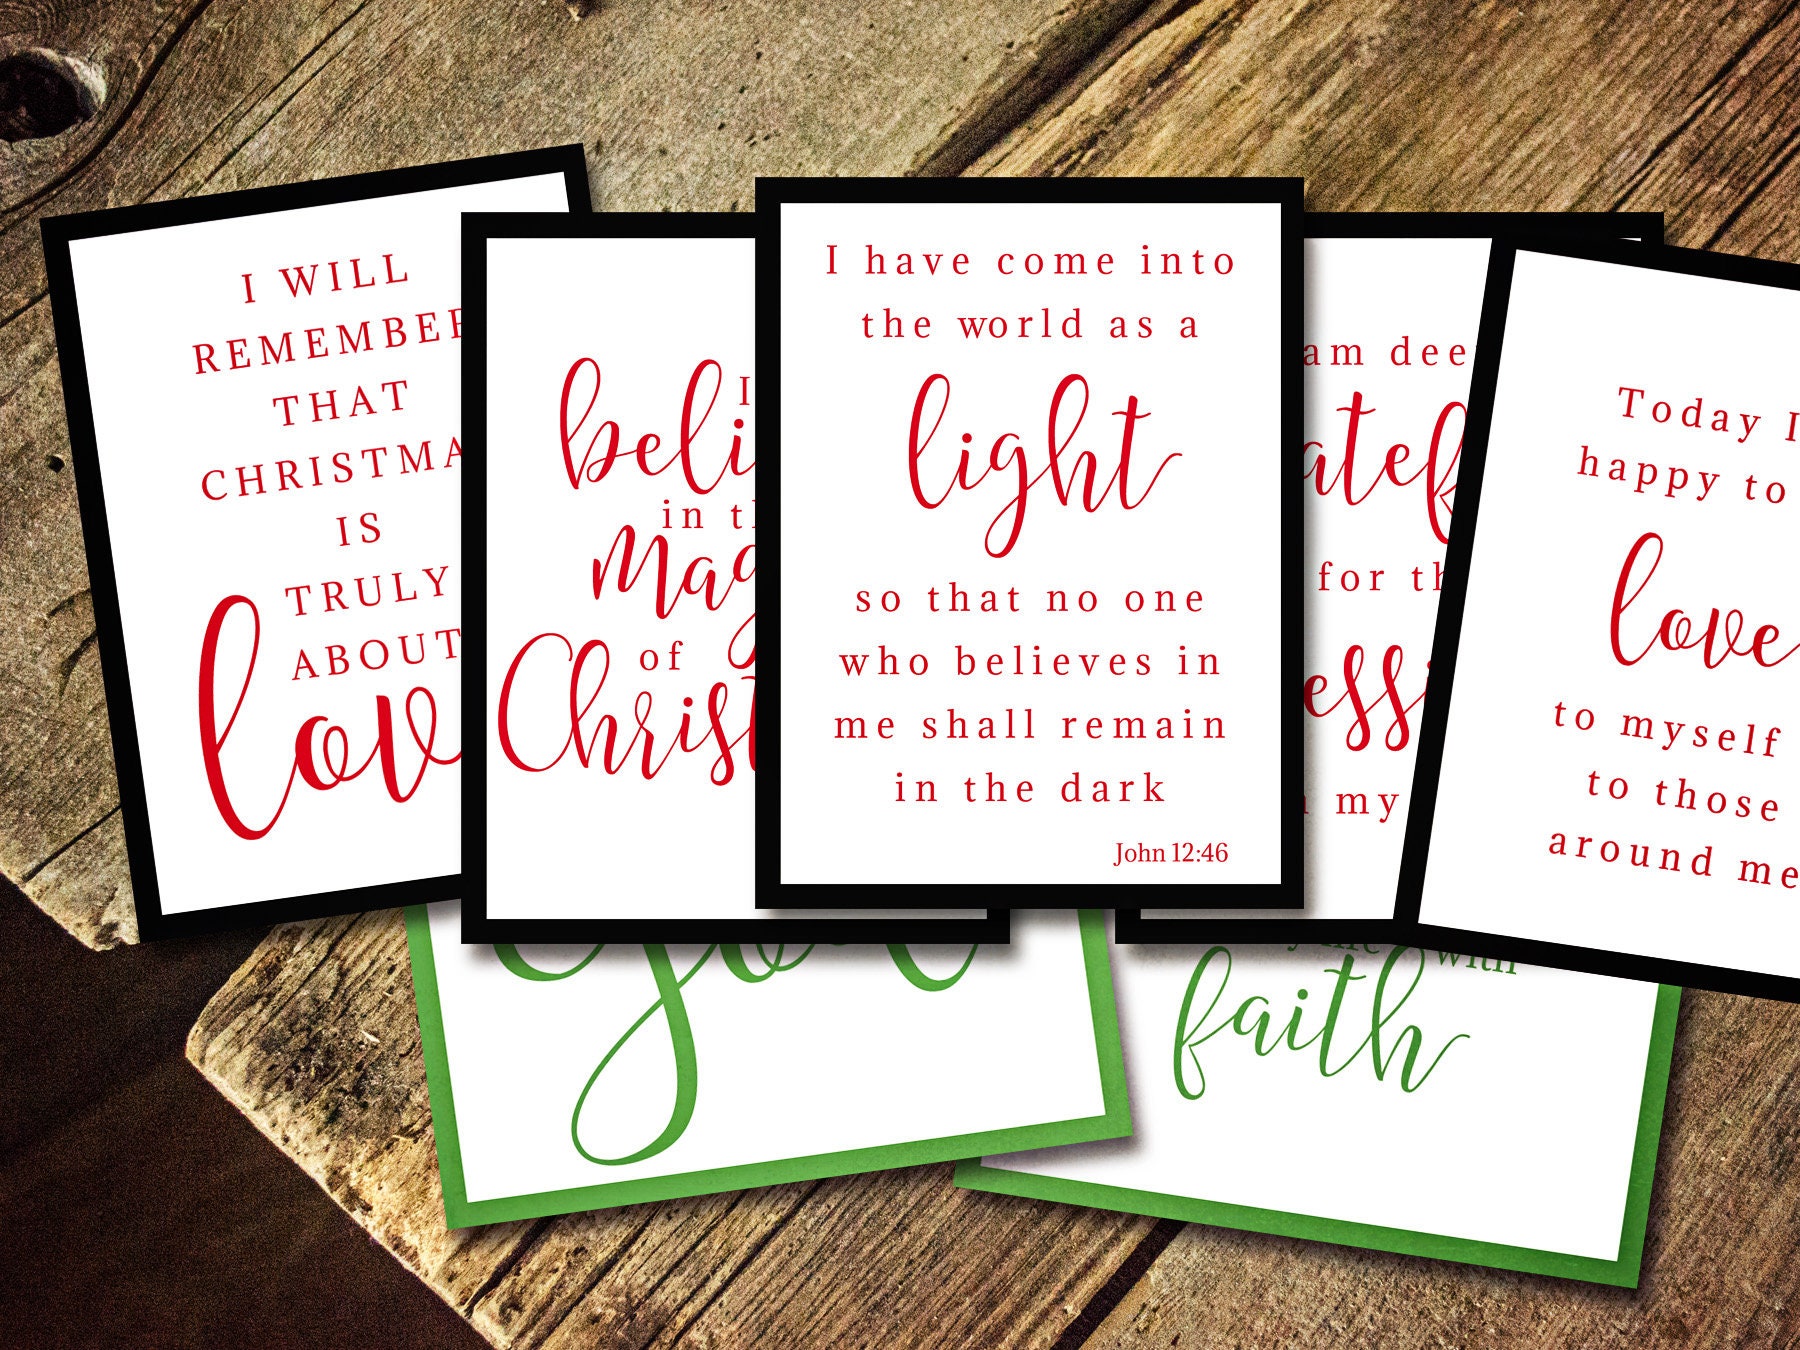 I WILL
REMEMBER
THAT
CHRISTMA
IS
TRULY
ABOUT
lov
I
beli
in th
Mag
of
Christ
I have come into
the world as a
light
so that no one
who believes in
me shall remain
in the dark
John 12:46
am dee
atef
for th
essi
my
Today I
happy to
love
to myself
to those
around me
with
faith